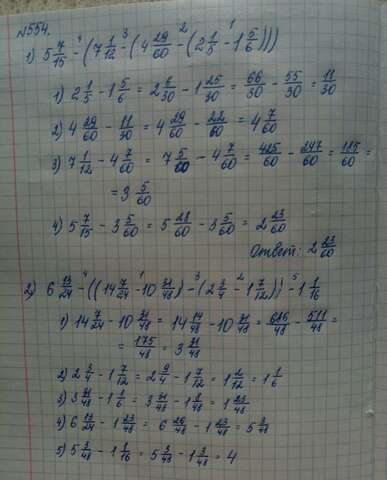 №554.
1) 5 7/15 - (7 1/12 - (4 29/60 - (2 1/5 - 1 5/6)))
1) 2 1/5 - 1 5/6 = 2 6/30 - 1 25/30 = 66/30 - 55/30 = 11/30
2) 4 29/60 - 11/30 = 4 29/60 - 22/60 = 4 7/60
3) 7 1/12 - 4 7/60 = 7 5/60 - 4 7/60 = 425/60 - 247/60 = 185/60 =
= 3 5/60
4) 5 7/15 - 3 5/60 = 5 28/60 - 3 5/60 = 2 23/60
Ответ: 2 23/60
2) 6 13/24 - ((14 7/24 - 10 31/48) - (2 3/4 - 1 7/12)) - 1 1/16
1) 14 7/24 - 10 31/48 = 14 14/48 - 10 31/48 = 686/48 - 511/48 =
= 175/48 = 3 31/48
2) 2 3/4 - 1 7/12 = 2 9/12 - 1 7/12 = 1 2/12 = 1 1/6
3) 3 31/48 - 1 1/6 = 3 31/48 - 1 8/48 = 1 23/48
4) 6 13/24 - 1 23/48 = 6 26/48 - 1 23/48 = 5 3/48
5) 5 3/48 - 1 1/16 = 5 3/48 - 1 3/48 = 4